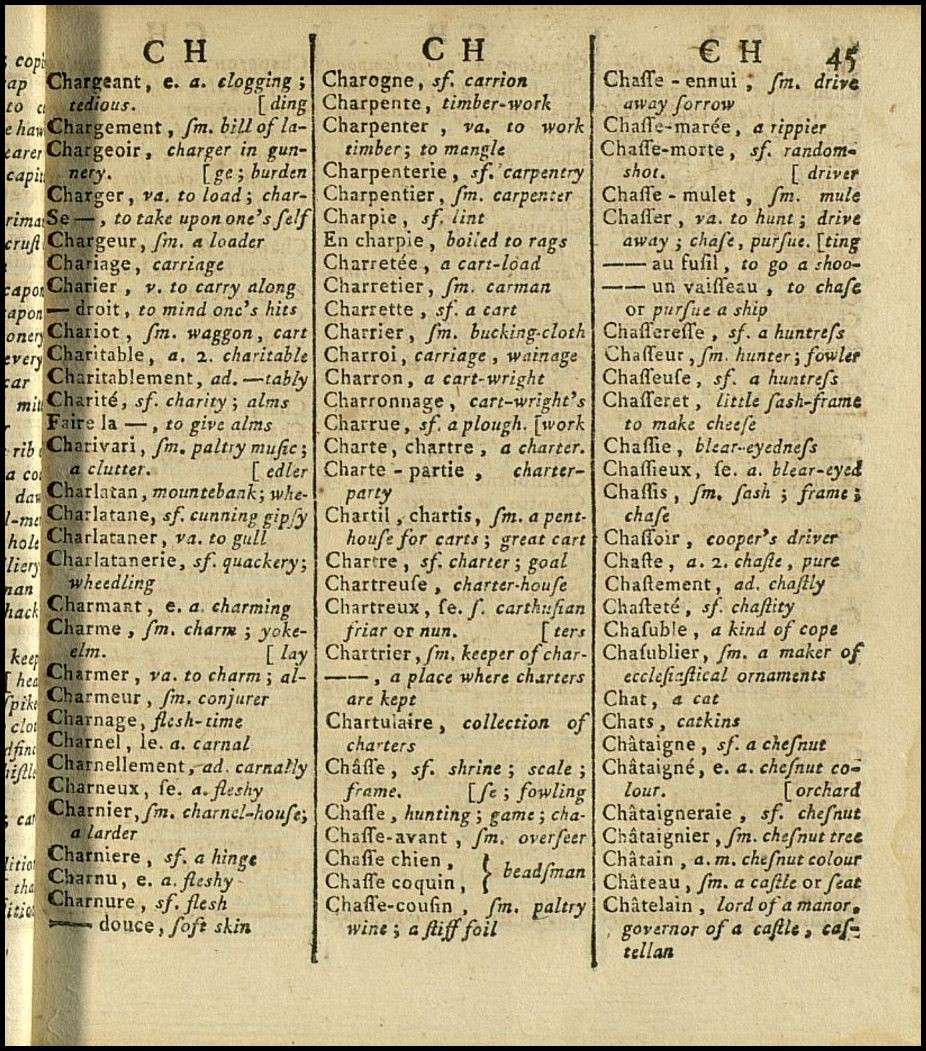 C H
Chargeant, e. a. clogging;
tedious. [ding
Chargement, ſm. bill of la-
Chargeoir, charger in gun-
nery. [ge; burden
Charger, va. to load; char-
Se —, to take upon one's ſelf
Chargeur, ſm. a loader
Chariage, carriage
Charier, v. to carry along
— droit, to mind one's hits
Chariot, ſm. waggon, cart
Charitable, a. 2. charitable
Charitablement, ad. —tably
Charité, sf. charity; alms
Faire la —, to give alms
Charivari, ſm. paltry muſic;
a clutter. [edler
Charlatan, mountebank; whe-
Charlatane, sf. cunning gipſy
Charlataner, va. to gull
Charlatanerie, sf. quackery;
wheedling
Charmant, e. a. charming
Charme, ſm. charm; yoke-
elm. [lay
Charmer, va. to charm; al-
Charmeur, ſm. conjurer
Charnage, fleſh-time
Charnel, le. a. carnal
Charnellement, ad. carnally
Charneux, ſe. a. fleshy
Charnier, ſm. charnel-houſe;
a larder
Charniere, sf. a hinge
Charnu, e. a. fleshy
Charnure, sf. fleſh
—— douce, ſoft skin
C H
Charogne, sf. carrion
Charpente, timber-work
Charpenter, va. to work
timber; to mangle
Charpenterie, sf. carpentry
Charpentier, ſm. carpenter
Charpie, sf. lint
En charpie, boiled to rags
Charretée, a cart-load
Charretier, ſm. carman
Charrette, sf. a cart
Charrier, ſm. bucking-cloth
Charroi, carriage, wainage
Charron, a cart-wright
Charronnage, cart-wright's
Charrue, sf. a plough. [work
Charte, chartre, a charter.
Charte-partie, charter-
party
Chartil, chartis, ſm. a pent-
houſe for carts; great cart
Chartre, sf. charter; goal
Chartreuſe, charter-houſe
Chartreux, ſe. ſ. carthuſian
friar or nun. [ters
Chartrier, ſm. keeper of char-
——, a place where charters
are kept
Chartulaire, collection of
charters
Châſſe, sf. shrine; scale;
frame. [ſe; fowling
Chaſſe, hunting; game; cha-
Chaſſe-avant, ſm. overſeer
Chaſſe chien, }
Chaſſe coquin, } beadſman
Chaſſe-couſin, ſm. paltry
wine; a ſtiff foil
C H 45
Chaſſe-ennui, ſm. drive
away ſorrow
Chaſſe-marée, a rippier
Chaſſe-morte, sf. random-
shot. [driver
Chaſſe-mulet, ſm. mule
Chaſſer, va. to hunt; drive
away; chaſe, purſue. [ting
—— au fuſil, to go a shoo-
—— un vaiſſeau, to chaſe
or purſue a ship
Chaſſereſſe, sf. a huntreſs
Chaſſeur, ſm. hunter; fowler
Chaſſeuſe, sf. a huntreſs
Chaſſeret, little ſash-frame
to make cheeſe
Chaſſie, blear-eyedneſs
Chaſſieux, ſe. a. blear-eyed
Chaſſis, ſm. ſash; frame;
chaſe
Chaſſoir, cooper's driver
Chaſte, a. 2. chaſte, pure
Chaſtement, ad. chaſtly
Chaſteté, sf. chaſtity
Chaſuble, a kind of cope
Chaſublier, ſm. a maker of
eccleſiaſtical ornaments
Chat, a cat
Chats, catkins
Châtaigne, sf. a cheſnut
Châtaigné, e. a. cheſnut co-
lour. [orchard
Châtaigneraie, sf. cheſnut
Châtaignier, ſm. cheſnut tree
Châtain, a. m. cheſnut colour
Château, ſm. a caſtle or ſeat
Châtelain, lord of a manor,
governor of a caſtle, caſ-
tellan